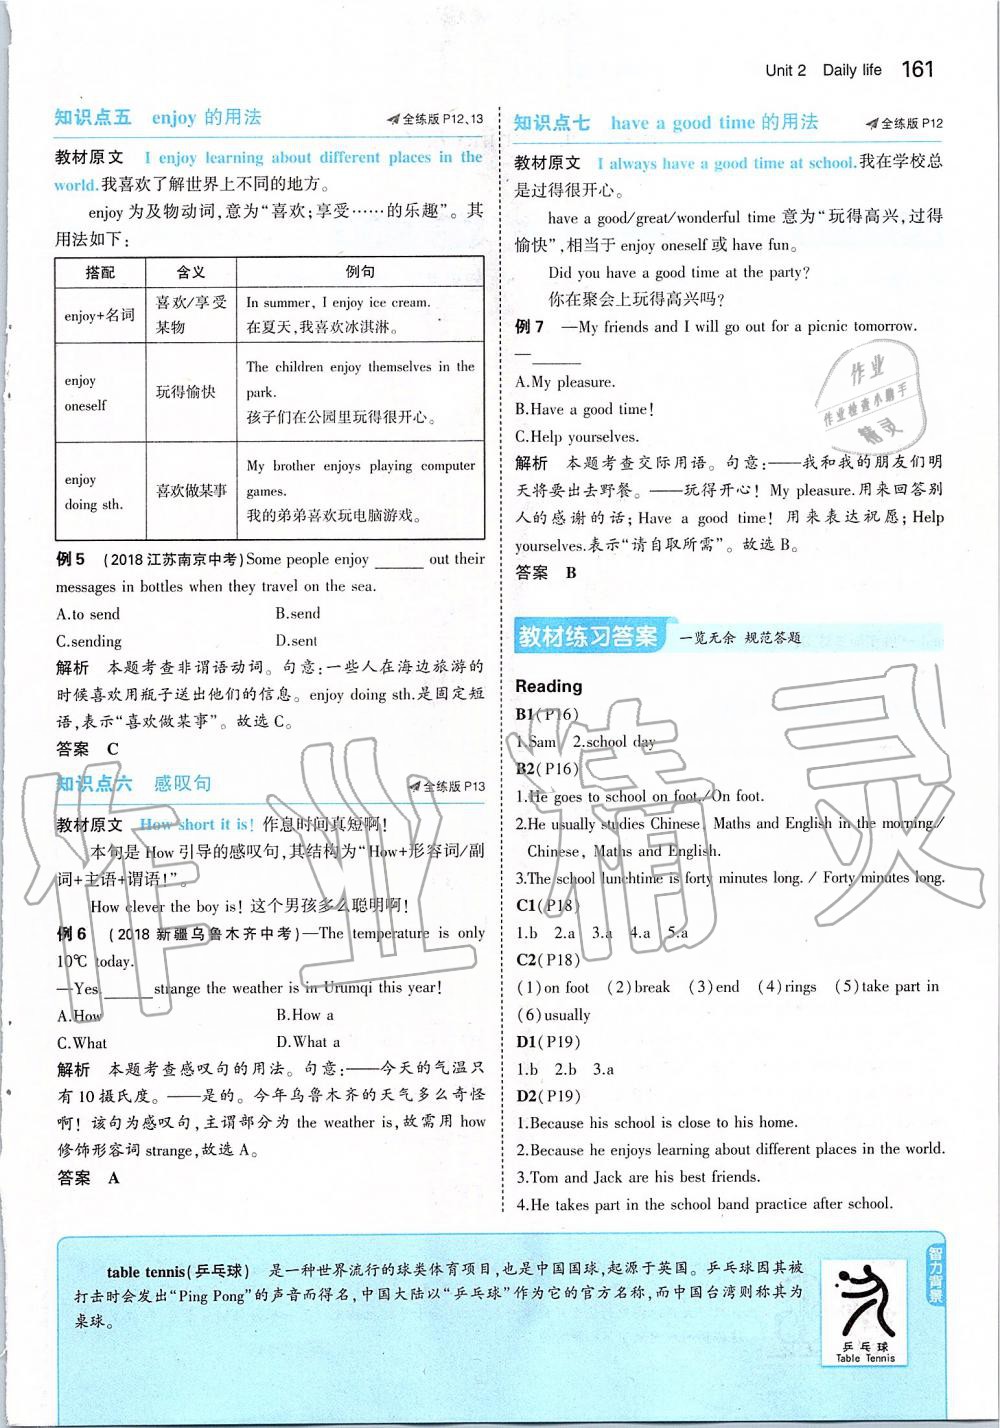 Unit 2 Daily life 161
知识点五 enjoy 的用法 全练版 P12、13
教材原文 I enjoy learning about different places in the
world.我喜欢了解世界上不同的地方。
enjoy 为及物动词,意为“喜欢;享受……的乐趣”。其
用法如下:
搭配 含义 例句
enjoy+名词 喜欢/享受某物 In summer, I enjoy ice cream.
在夏天,我喜欢冰淇淋。
enjoy
oneself
玩得愉快
The children enjoy themselves in the
park.
孩子们在公园里玩得很开心。
enjoy
doing sth.
喜欢做某事
My brother enjoys playing computer
games.
我的弟弟喜欢玩电脑游戏。
例 5 (2018江苏南京中考)Some people enjoy ______ out their
messages in bottles when they travel on the sea.
A.to send B.send
C.sending D.sent
解析 本题考查非谓语动词。句意:一些人在海边旅游的
时候喜欢用瓶子送出他们的信息。enjoy doing sth.是固定短
语,表示“喜欢做某事”。故选 C。
答案 C
知识点六 感叹句 全练版 P13
教材原文 How short it is! 作息时间真短啊!
本句是 How 引导的感叹句,其结构为“How+形容词/副
词+主语+谓语!”。
How clever the boy is! 这个男孩多么聪明啊!
例 6 (2018 新疆乌鲁木齐中考)—The temperature is only
10℃ today.
—Yes.______strange the weather is in Urumqi this year!
A.How B.How a
C.What D.What a
解析 本题考查感叹句的用法。句意:——今天的气温只
有 10 摄氏度。——是的。今年乌鲁木齐的天气多么奇怪
啊! 该句为感叹句,主谓部分为 the weather is,故需用 how
修饰形容词 strange,故选 A。
答案 A
知识点七 have a good time 的用法 全练版 P12
教材原文 I always have a good time at school.我在学校总
是过得很开心。
have a good/great/wonderful time 意为“玩得高兴,过得
愉快”,相当于 enjoy oneself 或 have fun。
Did you have a good time at the party?
你在聚会上玩得高兴吗?
例 7 —My friends and I will go out for a picnic tomorrow.
—______
A.My pleasure.
B.Have a good time!
C.Help yourselves.
解析 本题考查交际用语。句意:——我和我的朋友们明
天将要出去野餐。——玩得开心! My pleasure.用来回答别
人的感谢的话;Have a good time! 用来表达祝愿;Help
yourselves.表示“请自取所需”。故选 B。
答案 B
教材练习答案 一览无余 规范答题
Reading
B1(P16)
1.Sam 2.school day
B2(P16)
1.He goes to school on foot./On foot.
2.He usually studies Chinese, Maths and English in the morning./
Chinese, Maths and English.
3.The school lunchtime is forty minutes long. / Forty minutes long.
C1(P18)
1.b 2.a 3.a 4.a 5.a
C2(P18)
(1)on foot (2)break (3)end (4)rings (5)take part in
(6)usually
D1(P19)
1.b 2.b 3.a
D2(P19)
1.Because his school is close to his home.
2.Because he enjoys learning about different places in the world.
3.Tom and Jack are his best friends.
4.He takes part in the school band practice after school.
table tennis(乒乓球) 是一种世界流行的球类体育项目,也是中国国球,起源于英国。乒乓球因其被
打击时会发出“Ping Pong”的声音而得名,中国大陆以“乒乓球”作为它的官方名称,而中国台湾则称其为
桌球。
智力背景
乒乓球
Table Tennis
作业
作业检查小助手
精灵
作业精灵